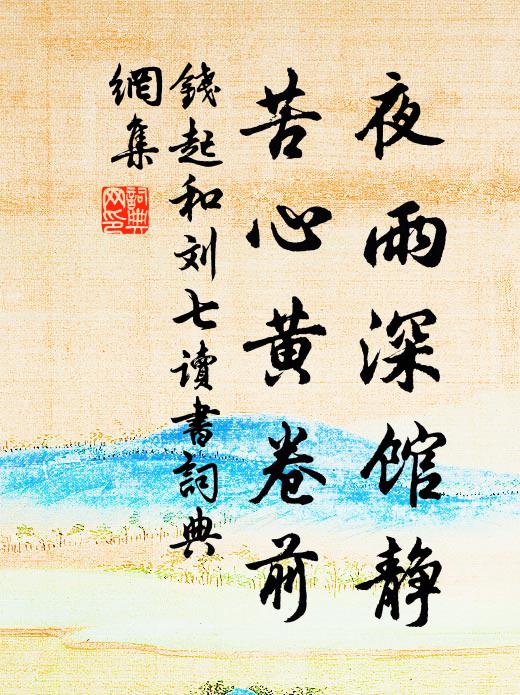 夜雨深馆静
苦心黄卷前
錢起和刘七讀書詞典
網集
詞典
网印